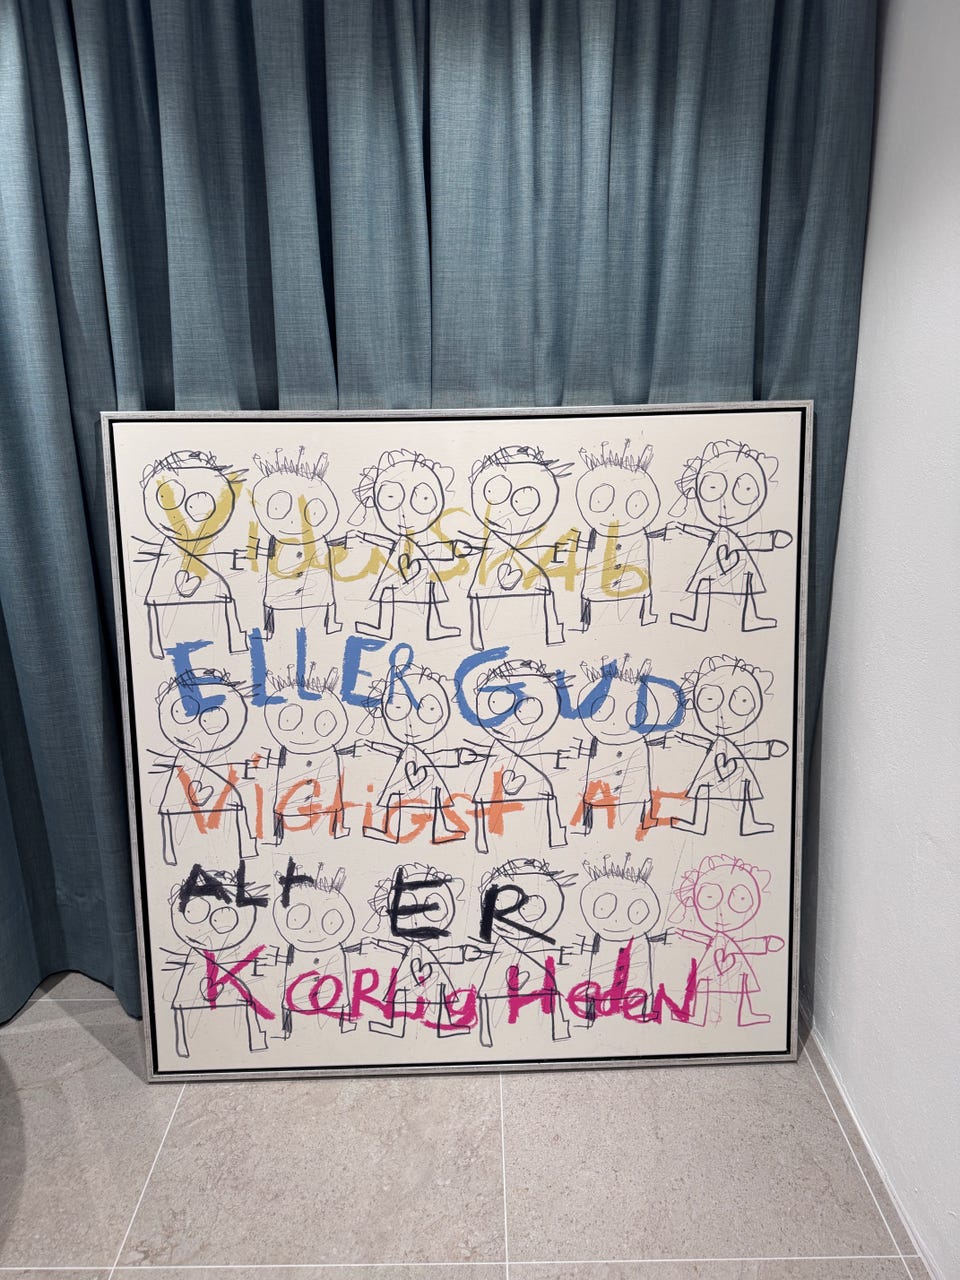 VidenSkAb
ELLER GUD
ViGtigst AF
ALt ER
KœRLig HedeN